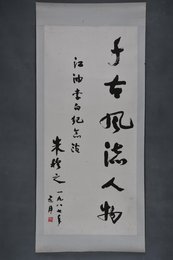 千古风流人物
江油李白纪念馆
朱穆之一九八七年